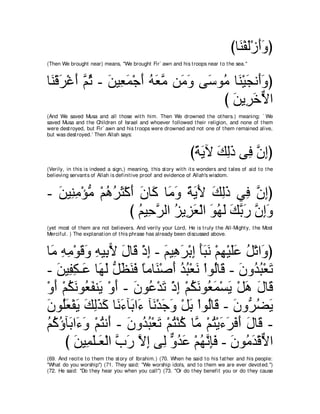 (وَأَزْلَفْنَا)
(Then We brought near) means, "We brought Fir`awn and his troops near to the sea."
(وَأَنجَيْنَا مُوسَى وَمَن مَّعَهُ أَجْمَعِينَ - ثُمَّ أَغْرَقْنَا
الاٌّخَرِينَ )
(And We saved Musa and all those with him. Then We drowned the others.) meaning: `We
saved Musa and the Children of Israel and whoever followed their religion, and none of them
were destroyed, but Fir`awn and his troops were drowned and not one of them remained alive,
but was destroyed.' Then Allah says:
(إِنَّ فِى ذَلِكَ لأَيَةً)
(Verily, in this is indeed a sign,) meaning, this story with its wonders and tales of aid to the
believing servants of Allah is definitive proof and evidence of Allah's wisdom.
(إِنَّ فِى ذَلِكَ لأَيَةً وَمَا كَانَ أَكْثَرُهُمْ مُّؤْمِنِينَ -
وَإِنَّ رَبَّكَ لَهُوَ الْعَزِيزُ الرَّحِيمُ )
(yet most of them are not believers. And verily your Lord, He is truly the All-Mighty, the Most
Merciful.) The explanation of this phrase has already been discussed above.
(وَاتْلُ عَلَيْهِمْ نَبَأَ إِبْرَهِيمَ - إِذْ قَالَ لاًّبِيهِ وَقَوْمِهِ مَا
تَعْبُدُونَ - قَالُواْ نَعْبُدُ أَصْنَاماً فَنَظَلُّ لَهَا عَـكِفِينَ -
قَالَ هَلْ يَسْمَعُونَكُمْ إِذْ تَدْعُونَ - أَوْ يَنفَعُونَكُمْ أَوْ
يَضُرُّونَ - قَالُواْ بَلْ وَجَدْنَآ ءَابَآءَنَا كَذَلِكَ يَفْعَلُونَ
- قَالَ أَفَرَءَيْتُمْ مَّا كُنْتُمْ تَعْبُدُونَ - أَنتُمْ وَءَابَآؤُكُمُ
الاٌّقْدَمُونَ - فَإِنَّهُمْ عَدُوٌّ لِى إِلاَّ رَبَّ الْعَـلَمِينَ )
(69. And recite to them the story of Ibrahim.) (70. When he said to his father and his people:
"What do you worship'') (71. They said: "We worship idols, and to them we are ever devoted.'')
(72. He said: "Do they hear you when you call'') (73. "Or do they benefit you or do they cause